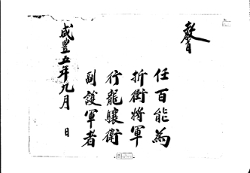 敎旨
任百能爲
折衝將軍
行龍驤衛
副護軍者
咸豊五年九月 日